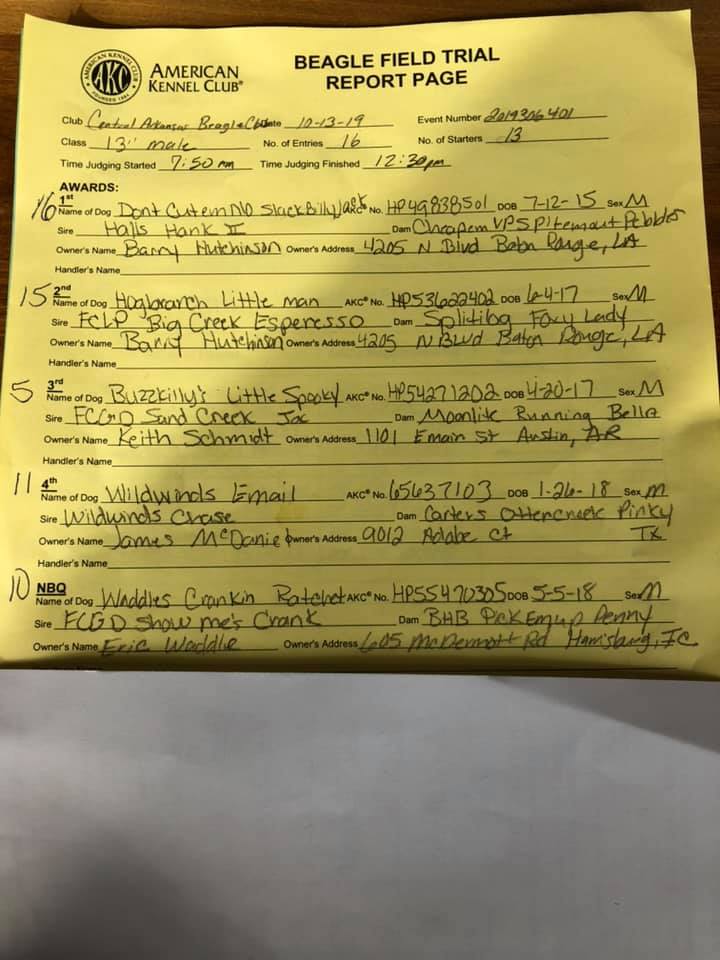 AMERICAN KENNEL CLUB FOUNDED 1884
AKC
AMERICAN
KENNEL CLUB®
BEAGLE FIELD TRIAL
REPORT PAGE
Club Central Arkansas Beagle Club Date 10-13-19 Event Number 2019306401
Class 13" male No. of Entries 16 No. of Starters 13
Time Judging Started 7:50 am Time Judging Finished 12:30pm
AWARDS:
16 1st
Name of Dog Dont Cutem NO Slack Billy Jack AKC® No. HP49838501 DOB 7-12-15 Sex M
Sire Halls Hank II Dam Cheapem VPS Pltemout Pebbles
Owner's Name Barry Hutchinson Owner's Address 4205 N Blvd Baton Rouge, LA
Handler's Name
15 2nd
Name of Dog Hogbranch Little man AKC® No. HP53622402 DOB 6-4-17 Sex M
Sire FCLP Big Creek Esperesso Dam Foxy Lady
Owner's Name Barry Hutchinson Owner's Address 4205 N Blvd Baton Rouge, LA
Handler's Name
5 3rd
Name of Dog Buzzkilly's Little Spooky AKC® No. HP54271202 DOB 4-20-17 Sex M
Sire FCGD Sand Creek Jac Dam Moonlite Running Bella
Owner's Name Keith Schmidt Owner's Address 1101 Emain St Austin, AR
Handler's Name
11 4th
Name of Dog Wildwinds Email AKC® No. 65637103 DOB 1-26-18 Sex M
Sire Wildwinds Chase Dam Carters Ottercreek Pinky
Owner's Name James McDaniel Owner's Address 9012 Adobe Ct TX
Handler's Name
10 NBQ
Name of Dog Waddles Crankin Ratchet AKC® No. HP55470305 DOB 5-5-18 Sex M
Sire FCGD Show me's Crank Dam BHB Pick Emup Penny
Owner's Name Eric Waddle Owner's Address 605 McDermott Rd Harrisburg, IL